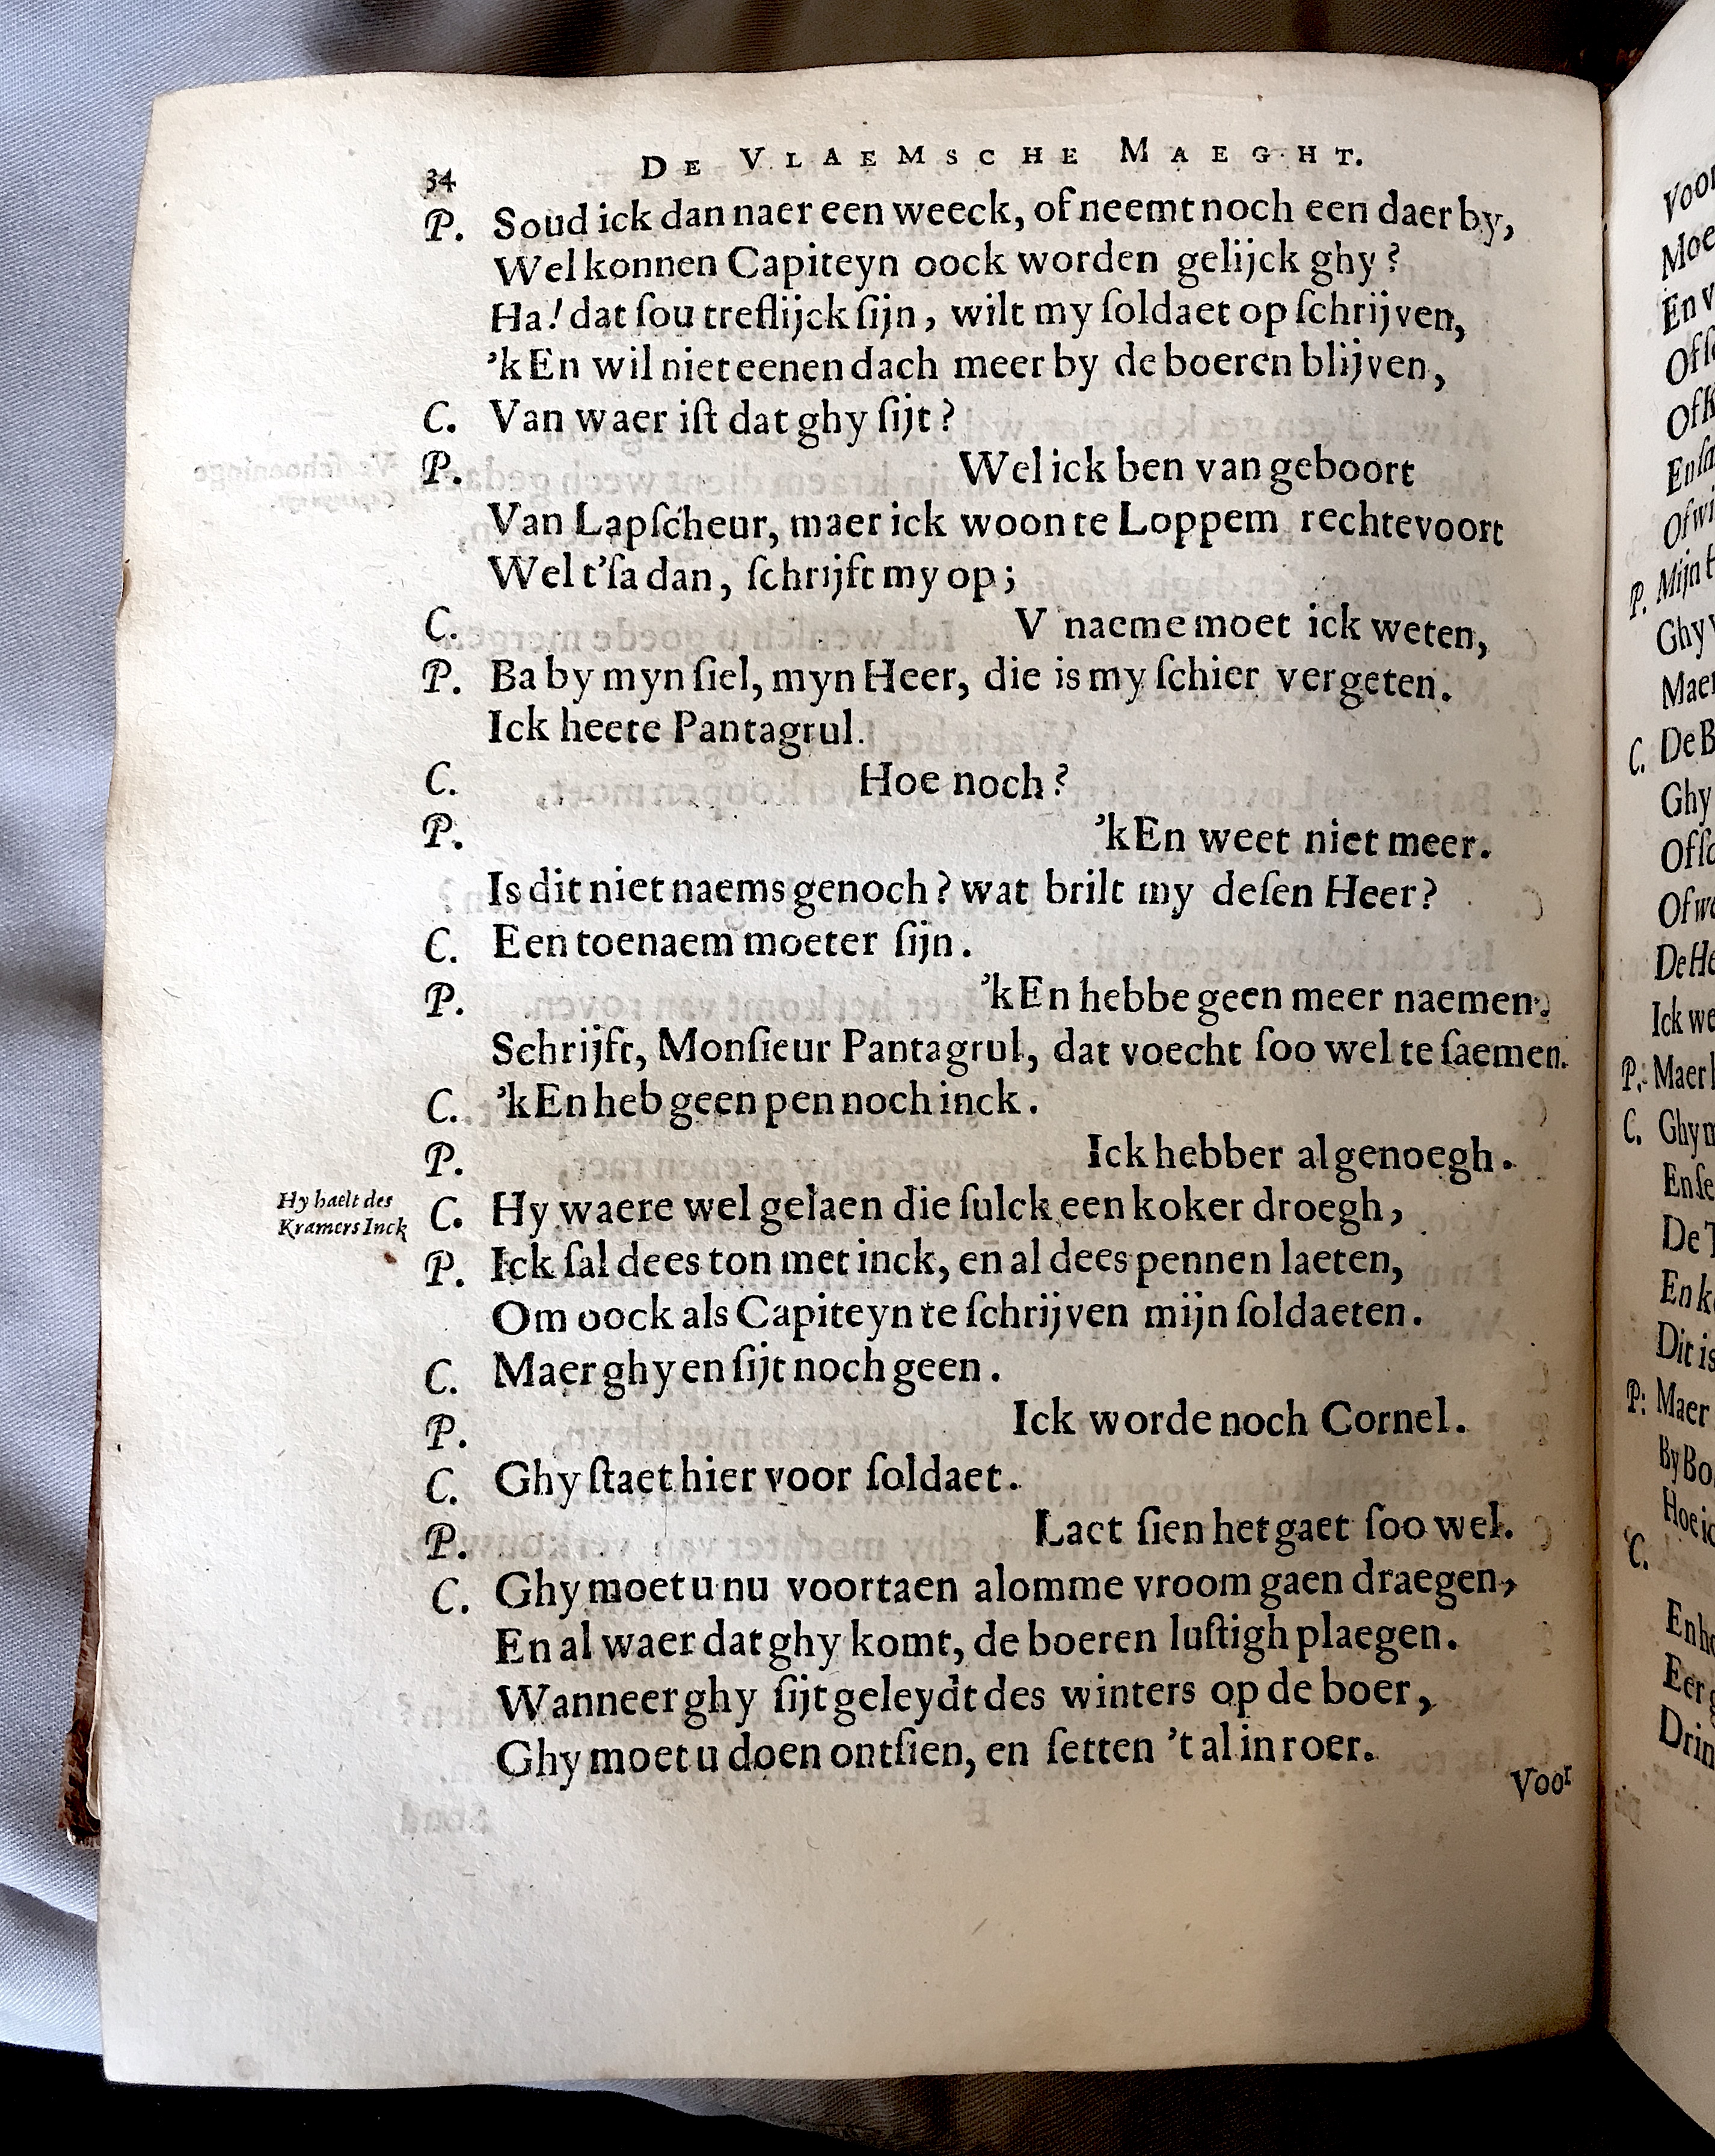 34 De Vlaemsche Maeght.
P. Soud ick dan naer een weeck, of neemt noch een daer by,
Wel konnen Capiteyn oock worden gelijck ghy?
Ha! dat ſou treflijck ſijn, wilt my ſoldaet op ſchrijven,
'k En wil niet eenen dach meer by de boeren blijven,
C. Van waer iſt dat ghy ſijt?
P. Wel ick ben van geboort
Van Lapſcheur, maer ick woon te Loppem rechtevoort
Wel t'ſa dan, ſchrijft my op;
C. V naeme moet ick weten,
P. Ba by myn ſiel, myn Heer, die is my ſchier vergeten.
Ick heete Pantagrul.
C. Hoe noch?
P. 'k En weet niet meer.
Is dit niet naems genoch? wat brilt my deſen Heer?
C. Een toenaem moeter ſijn.
P. 'k En hebbe geen meer naemen.
Schrijft, Monſieur Pantagrul, dat voecht ſoo wel te ſaemen.
C. 'k En heb geen pen noch inck.
P. Ick hebber al genoegh.
Hy haelt des
Kramers Inck
C. Hy waere wel gelaen die ſulck een koker droegh,
P. Ick ſal dees ton met inck, en al dees pennen laeten,
Om oock als Capiteyn te ſchrijven mijn ſoldaeten.
C. Maer ghy en ſijt noch geen.
P. Ick worde noch Cornel.
C. Ghy ſtaet hier voor ſoldaet.
P. Laet ſien het gaet ſoo wel.
C. Ghy moet u nu voortaen alomme vroom gaen draegen,
En al waer dat ghy komt, de boeren luſtigh plaegen.
Wanneer ghy ſijt geleydt des winters op de boer,
Ghy moet u doen ontſien, en ſetten 't al in roer.
Voor
P. Mijn
Ghy
Maer
C. De B
Ghy
De He
Ick we
P. Maer
C. Ghy m
De T
Dit is
P: Maer
By Bo
Hoe ic
C.
Eer
Drin